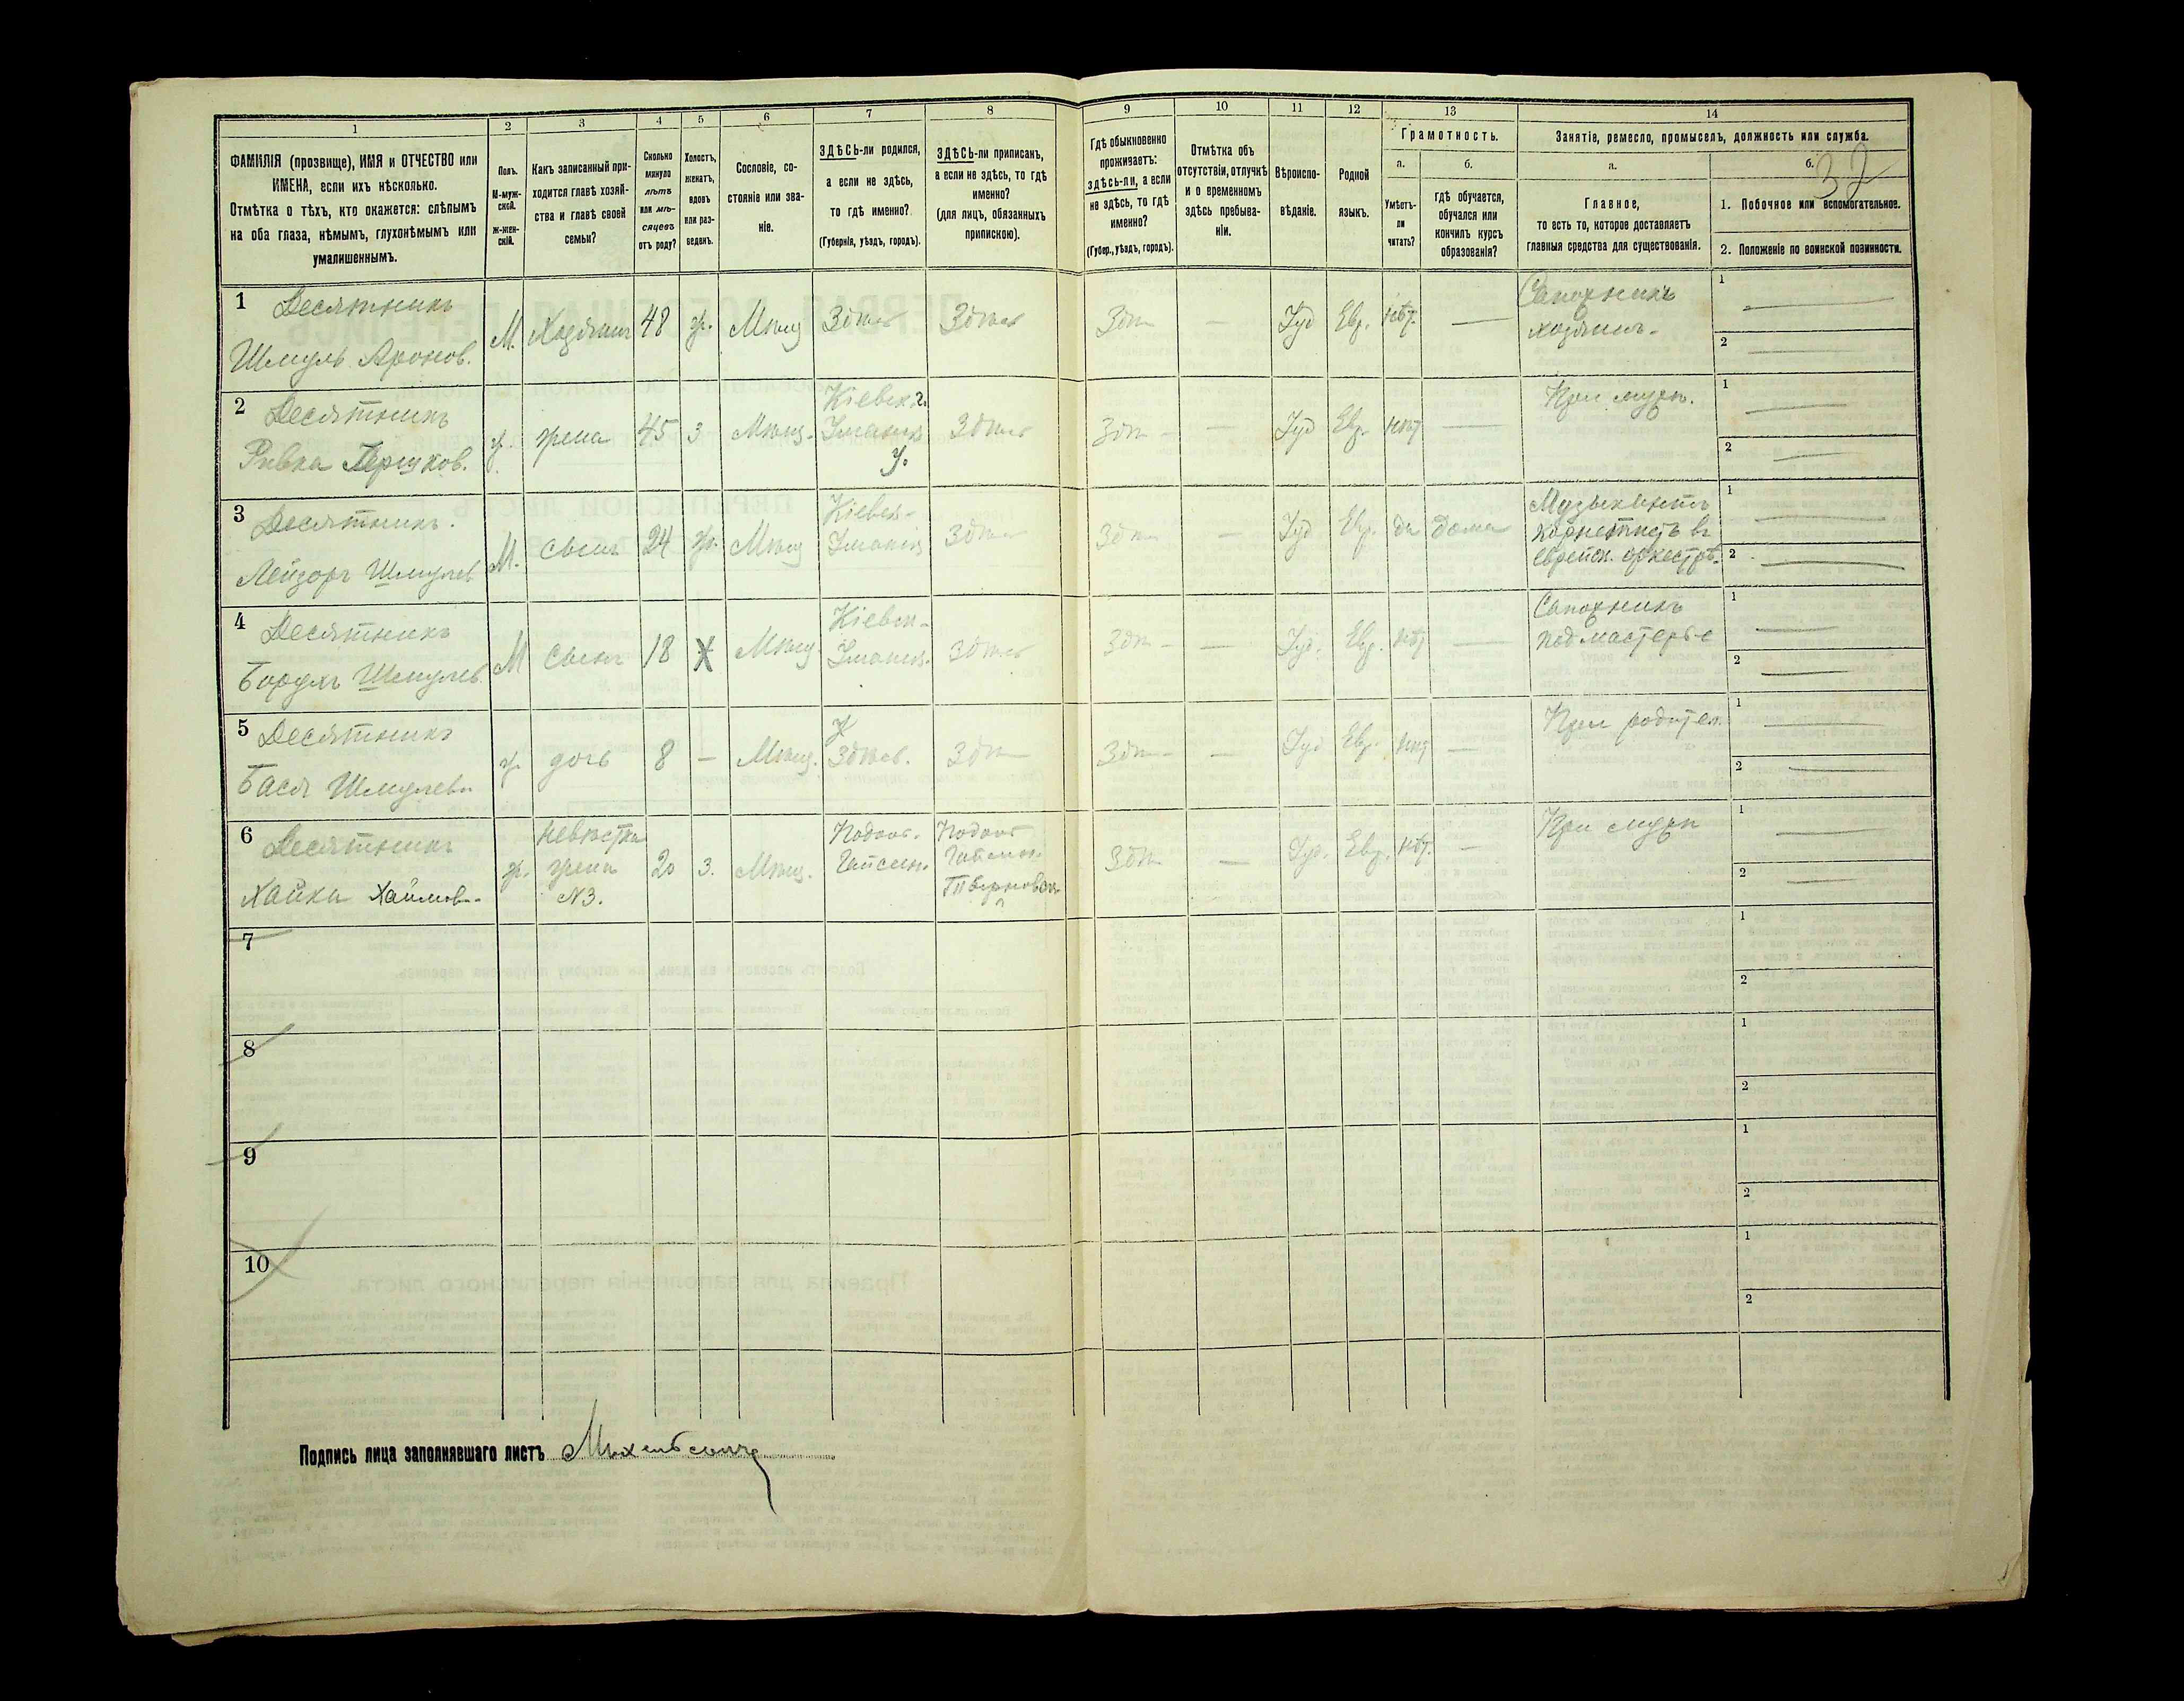 1 2 3 4 5 6 7 8 9 10 11 12 13 14
ФАМИЛІЯ (прозвище), ИМЯ и ОТЧЕСТВО или
ИМЕНА, если ихъ нѣсколько.
Отмѣтка о тѣхъ, кто окажется: слѣпымъ
на оба глаза, нѣмымъ, глухонѣмымъ или
умалишеннымъ.
Полъ.
М-муж-
ской.
ж-жен-
скій.
Какъ записанный при-
ходится главѣ хозяй-
ства и главѣ своей
семьи?
Сколько
минуло
лѣтъ
или мѣ-
сяцевъ
отъ роду?
Холостъ,
женатъ,
вдовъ
или раз-
веденъ.
Сословіе, со-
стояніе или зва-
ніе.
ЗДѢСЬ-ли родился,
а если не здѣсь,
то гдѣ именно?
(Губернія, уѣздъ, городъ).
ЗДѢСЬ-ли приписанъ,
а если не здѣсь, то гдѣ
именно?
(для лицъ, обязанныхъ
припискою).
Гдѣ обыкновенно
проживаетъ:
здѣсь-ли, а если
не здѣсь, то гдѣ
именно?
(Губер., уѣздъ, городъ).
Отмѣтка объ
отсутствіи, отлучкѣ
и о временномъ
здѣсь пребыва-
ніи.
Вѣроиспо-
вѣданіе.
Родной
языкъ.
Грамотность.
а.
Умѣетъ-
ли
читать?
б.
гдѣ обучается,
обучался или
кончилъ курсъ
образованія?
Занятіе, ремесло, промыселъ, должность или служба.
а.
Главное,
то есть то, которое доставляетъ
главныя средства для существованія.
б.
32
1. Побочное или вспомогательное.
2. Положеніе по воинской повинности.
1 Десятникъ
Шмуль Аронов.
М. Хозяинъ 48 ж. Мѣщ Здѣсь Здѣсь Здѣ — Іуд Евр. нѣт. —
Сапожникъ
хозяинъ.
1
2
2 Десятникъ
Ривка Гершков.
ж. жена 45 з Мѣщ.
Кіевск. г.
Уманск
у.
Здѣсь Здѣ — — Іуд Евр. нѣт —
При мужѣ.
1
2
3 Десятникъ.
Лейзоръ Шмулев
М. сынъ 24 ж. Мѣщ
Кіевск-
Уманск
Здѣсь Здѣ — Іуд Евр. да дома
Музыкантъ
корнетистъ въ
еврейск. оркестрѣ.
1
2
4 Десятникъ
Борухъ Шмулев
М сынъ 18 Х Мѣщ
Кіевск-
Уманск.
Здѣсь Здѣ — — Іуд. Евр. нѣт —
Сапожникъ
подмастерье
1
2
5 Десятникъ
Бася Шмулев.
ж дочь 8 — Мѣщ. Здѣсь. Здѣ Здѣ — — Іуд Евр. нѣт —
При родител.
1
2
6 Десятникъ
Хайка Хаимов.
ж.
невѣстка
жена
№3.
20 з. Мѣщ.
Подол.
Гайсин.
Подол
Гайсин.
Здѣ — Іуд. Евр. нѣт. —
При мужѣ
1
2
7
1
2
8
1
2
9
1
2
10
1
2
Подпись лица заполнявшаго листъ